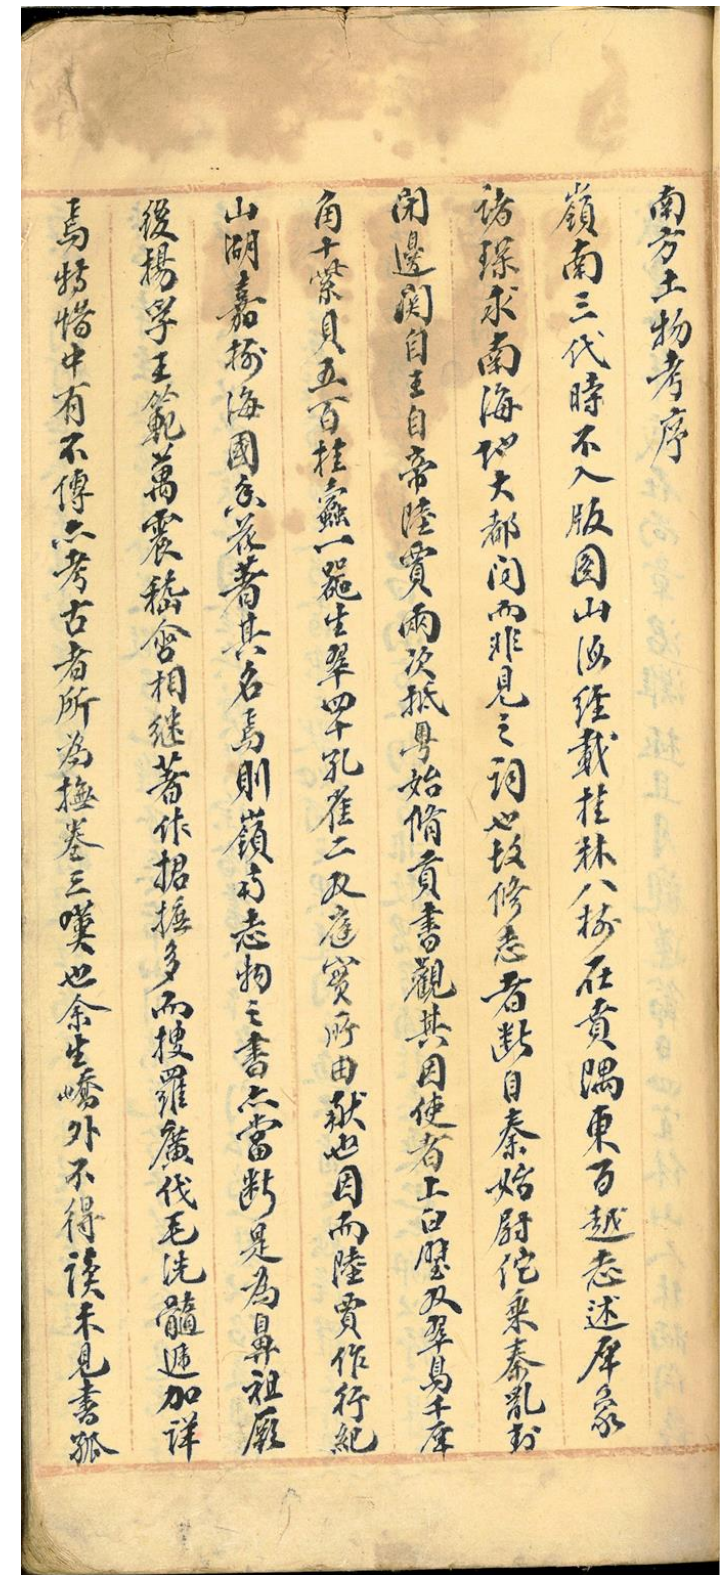 南方土物考序
嶺南三代時不入版圖山海經載桂林八樹在賁隅東百越志述犀象
諸琛求南海地大都聞而非見之詞也故修志者斷自秦始尉佗乘秦亂封
閉邊關自王自帝陸賈兩次抵粵始脩貢書觀其因使者上白璧及翠鳥千犀
角十紫貝五百桂蠹一器生翠四十孔雀二及庭實所由獻也因而陸賈作行紀
山湖嘉樹海國香花著其名焉則嶺南志物之書亦當斷是為鼻祖厥
後楊孚王範萬震嵇含相繼著作捃摭多而搜羅廣伐毛洗髓遞加詳
焉特惜中有不傳亦考古者所為撫卷三嘆也余生嶠外不得讀未見書孤